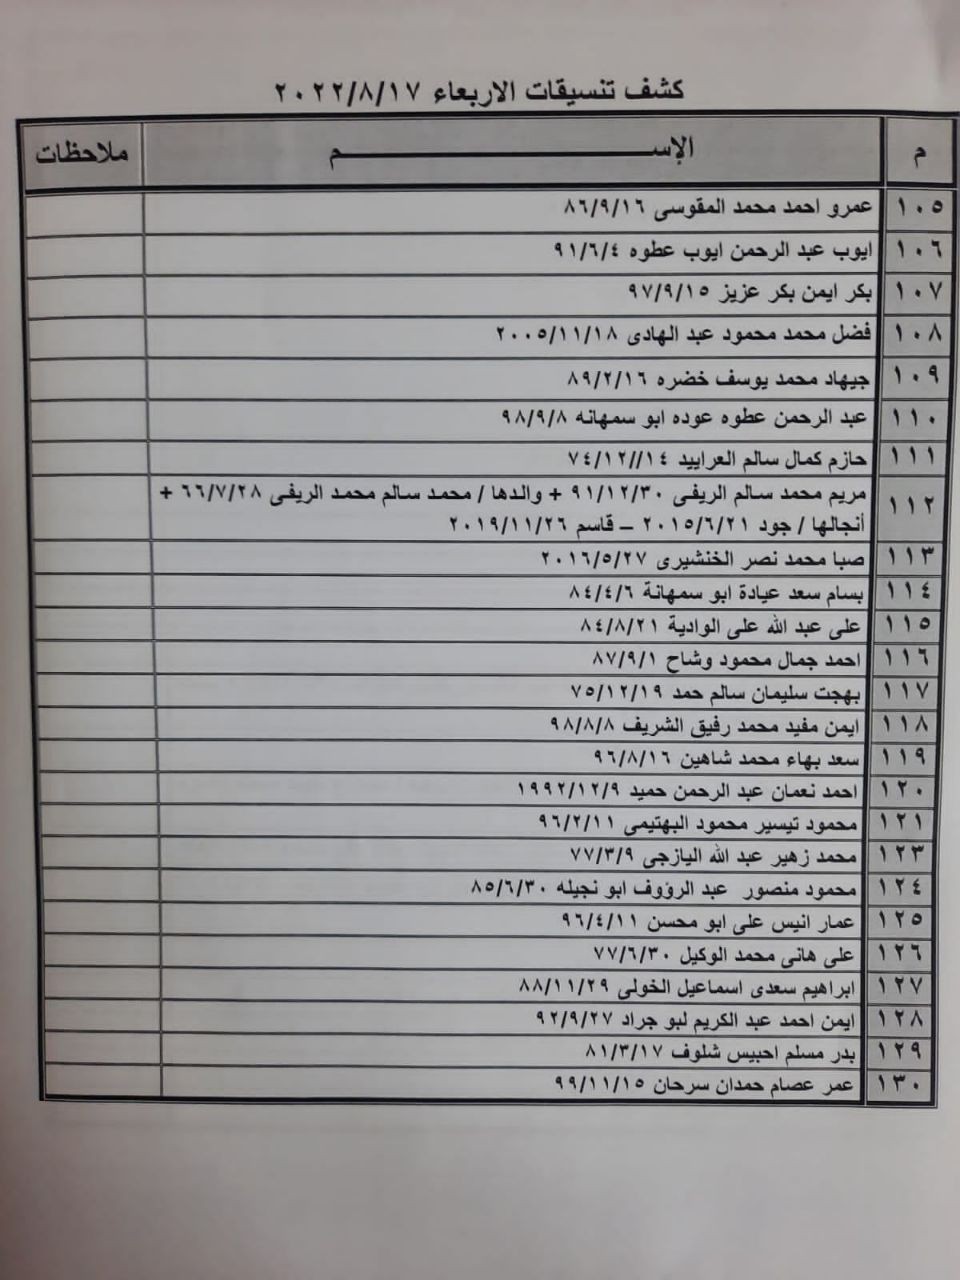 كشف تنسيقات الاربعاء ٢٠٢٢/٨/١٧
م الإســـــــــــم ملاحظات
١٠٥ عمرو احمد محمد المقوسى ٨٦/٩/١٦
١٠٦ ايوب عبد الرحمن ايوب عطوه ٩١/٦/٤
١٠٧ بكر ايمن بكر عزيز ٩٧/٩/١٥
١٠٨ فضل محمد محمود عبد الهادى ٢٠٠٥/١١/١٨
١٠٩ جيهاد محمد يوسف خضره ٨٩/٢/١٦
١١٠ عبد الرحمن عطوه عوده ابو سمهانه ٩٨/٩/٨
١١١ حازم كمال سالم العرابيد ٧٤/١٢//١٤
١١٢ مريم محمد سالم الريفى ٩١/١٢/٣٠ + والدها / محمد سالم محمد الريفى ٦٦/٧/٢٨ +
أنجالها / جود ٢٠١٥/٦/٢١ – قاسم ٢٠١٩/١١/٢٦
١١٣ صبا محمد نصر الخنشيرى ٢٠١٦/٥/٢٧
١١٤ بسام سعد عيادة ابو سمهانة ٨٤/٤/٦
١١٥ على عبد الله على الوادية ٨٤/٨/٢١
١١٦ احمد جمال محمود وشاح ٨٧/٩/١
١١٧ بهجت سليمان سالم حمد ٧٥/١٢/١٩
١١٨ ايمن مفيد محمد رفيق الشريف ٩٨/٨/٨
١١٩ سعد بهاء محمد شاهين ٩٦/٨/١٦
١٢٠ احمد نعمان عبد الرحمن حميد ١٩٩٢/١٢/٩
١٢١ محمود تيسير محمود البهتيمى ٩٦/٢/١١
١٢٣ محمد زهير عبد الله اليازجى ٧٧/٣/٩
١٢٤ محمود منصور عبد الرؤوف ابو نجيله ٨٥/٦/٣٠
١٢٥ عمار انيس على ابو محسن ٩٦/٤/١١
١٢٦ على هانى محمد الوكيل ٧٧/٦/٣٠
١٢٧ ابراهيم سعدى اسماعيل الخولى ٨٨/١١/٢٩
١٢٨ ايمن احمد عبد الكريم لبو جراد ٩٢/٩/٢٧
١٢٩ بدر مسلم احبيس شلوف ٨١/٣/١٧
١٣٠ عمر عصام حمدان سرحان ٩٩/١١/١٥